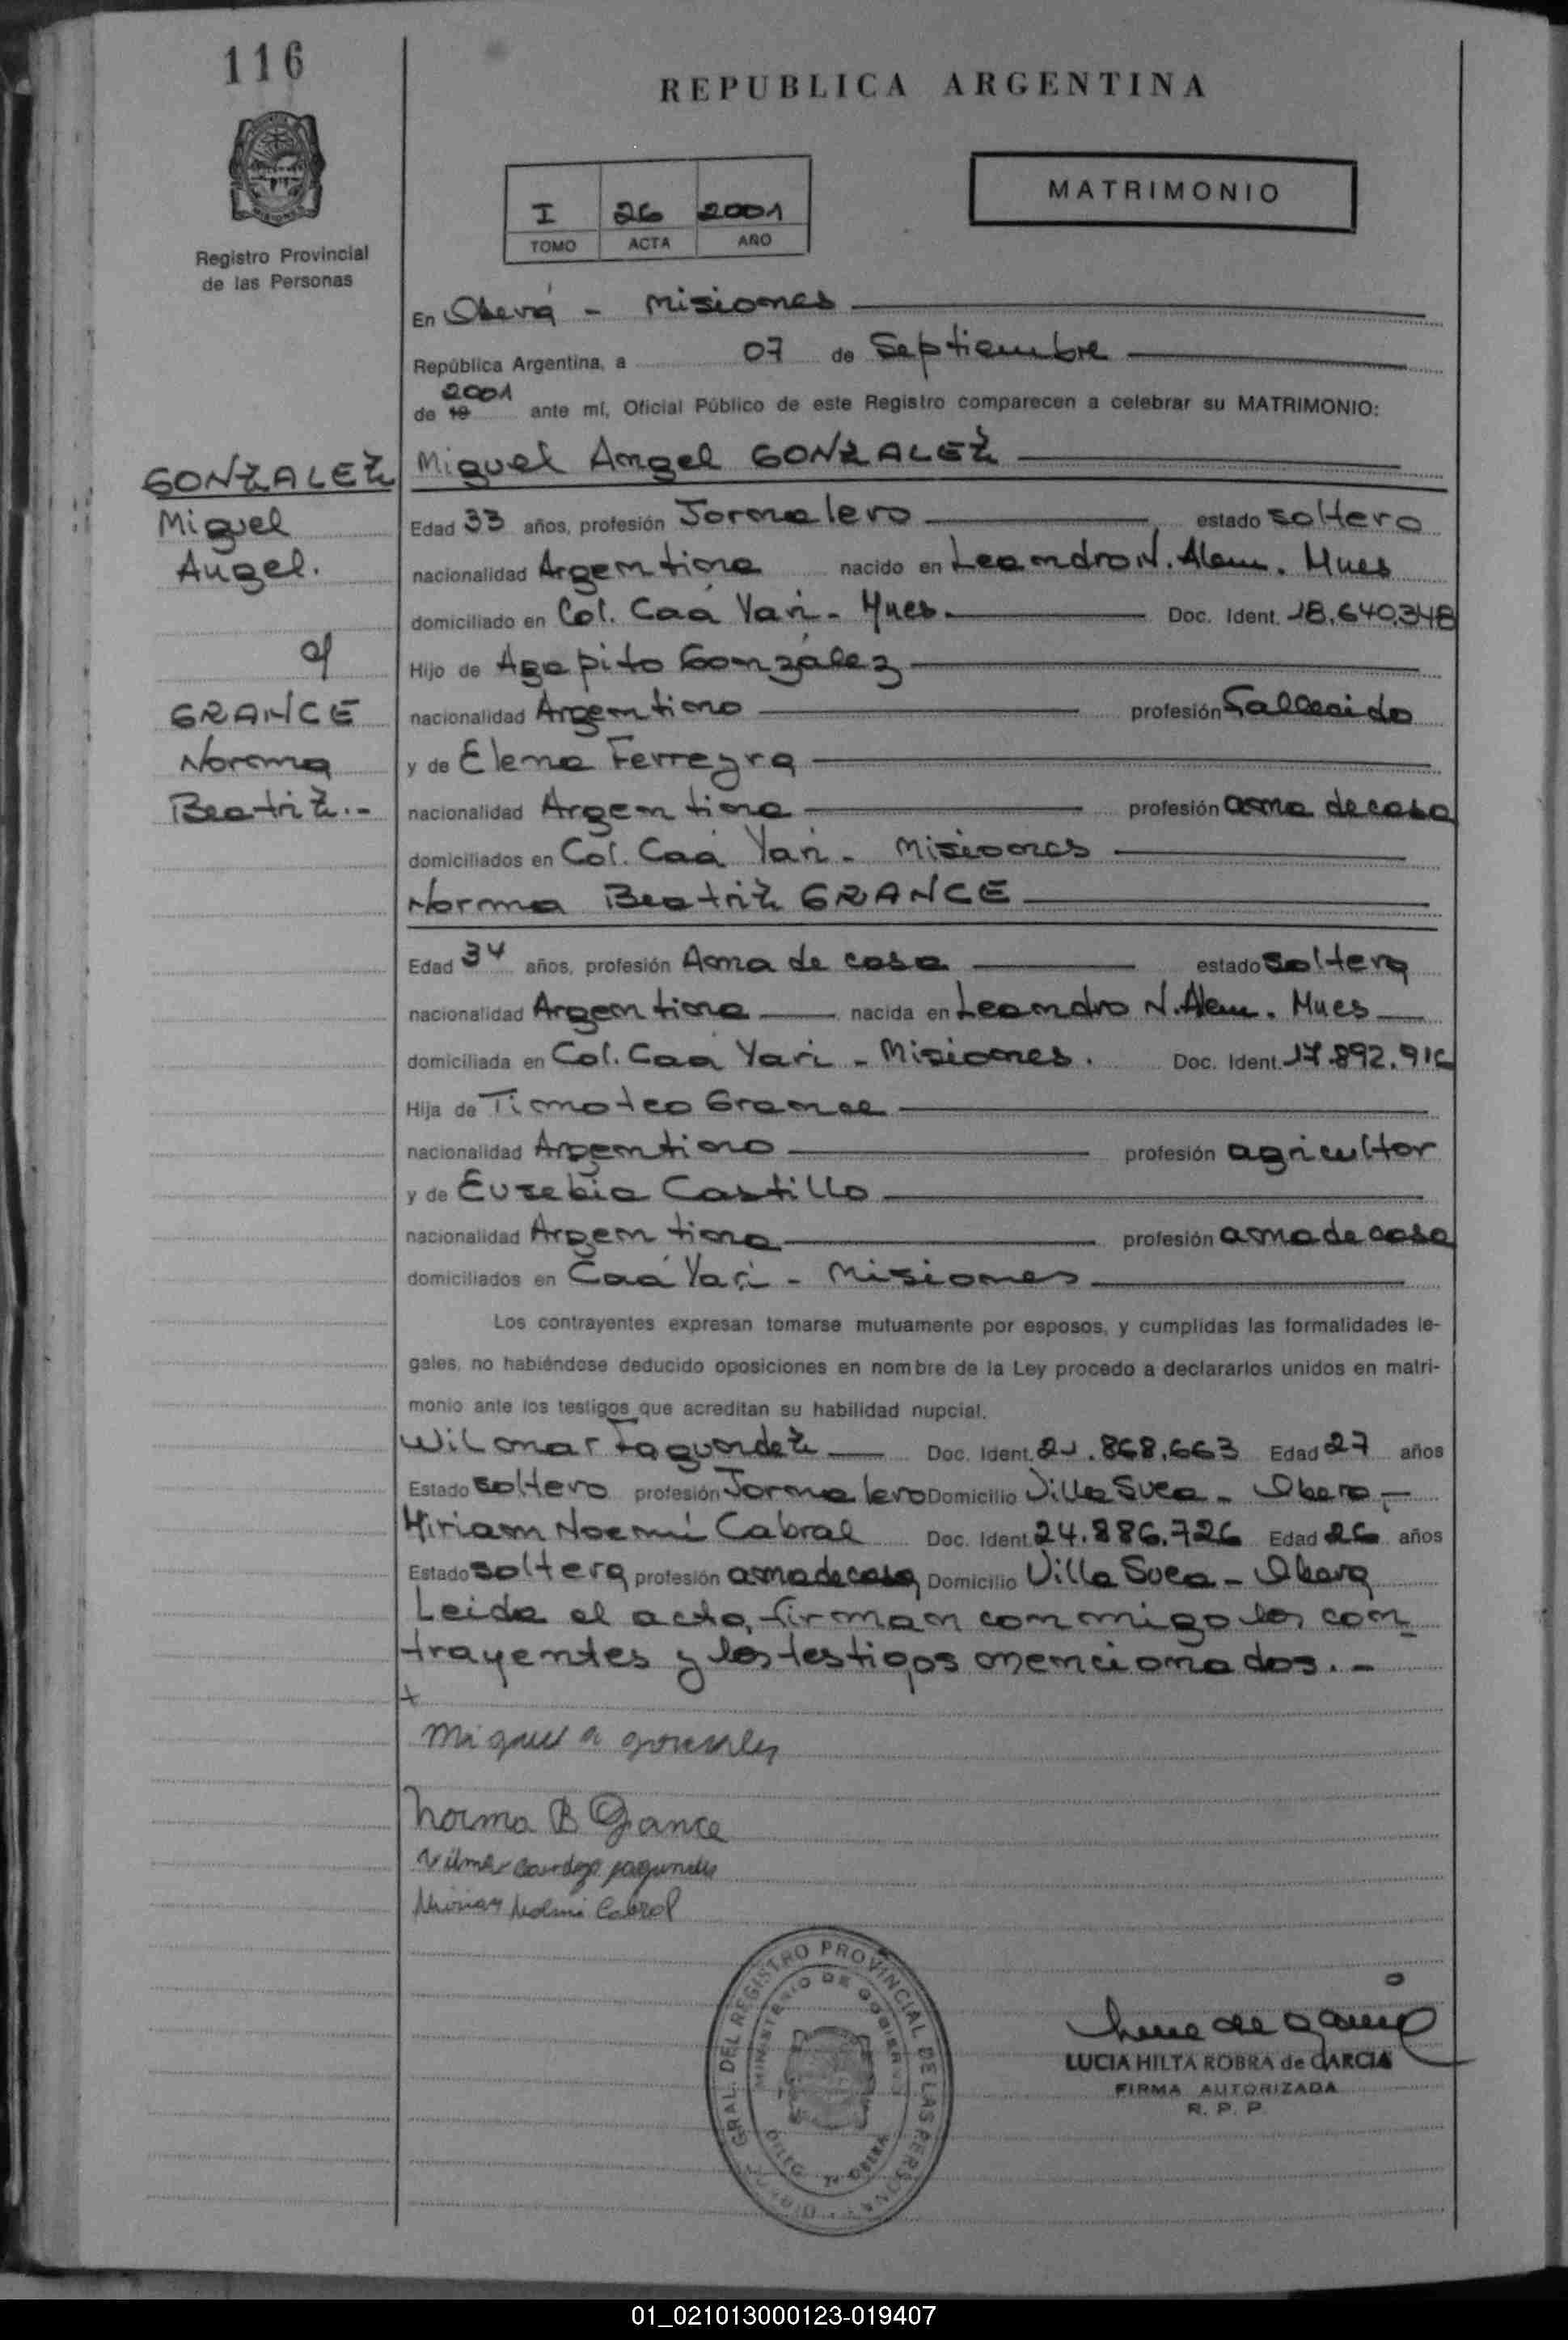 116
REPUBLICA ARGENTINA
MATRIMONIO
I 26 2001
TOMO ACTA AÑO
Registro Provincial
de las Personas
En Oberá - Misiones
República Argentina, a 07 de Septiembre
2001
de 19 ante mí, Oficial Público de este Registro comparecen a celebrar su MATRIMONIO:
GONZALEZ
Miguel
Angel.
c/
GRANCE
Norma
Beatriz.-
Miguel Angel GONZALEZ
Edad 33 años, profesión Jornalero estado soltero
nacionalidad Argentina nacido en Leandro N. Alem. Mnes
domiciliado en Col. Caá Yari - Mnes. Doc. Ident. 18.640.348
Hijo de Agapito González
nacionalidad Argentino profesión Fallecido
y de Elena Ferreyra
nacionalidad Argentina profesión ama de casa
domiciliados en Col. Caá Yari - Misiones
Norma Beatriz GRANCE
Edad 34 años, profesión Ama de casa estado soltera
nacionalidad Argentina nacida en Leandro N. Alem. Mnes
domiciliada en Col. Caá Yari - Misiones. Doc. Ident. 17.892.916
Hija de Timoteo Grance
nacionalidad Argentino profesión agricultor
y de Eusebia Castillo
nacionalidad Argentina profesión ama de casa
domiciliados en Caá Yari - Misiones
Los contrayentes expresan tomarse mutuamente por esposos, y cumplidas las formalidades le-
gales, no habiéndose deducido oposiciones en nombre de la Ley procedo a declararlos unidos en matri-
monio ante los testigos que acreditan su habilidad nupcial.
Wilmar Fagundez Doc. Ident. 21.868.663 Edad 27 años
Estado soltero profesión Jornalero Domicilio Villa Svea - Obera -
Miriam Noemí Cabral Doc. Ident. 24.886.726 Edad 26 años
Estado soltera profesión ama de casa Domicilio Villa Svea - Obera
Leida el acta, firman conmigo los con-
trayentes y los testigos mencionados.-
Miguel A gonzalez
Norma B Grance
Vilmar Cardozo fagundes
Miriam Noemi Cabral
GRAL. DEL REGISTRO PROVINCIAL DE LAS PERSONAS
MINISTERIO DE GOBIERNO
DELEG. OBERA
LUCIA HILTA ROBRA de GARCIA
FIRMA AUTORIZADA
R. P. P.
01_021013000123-019407